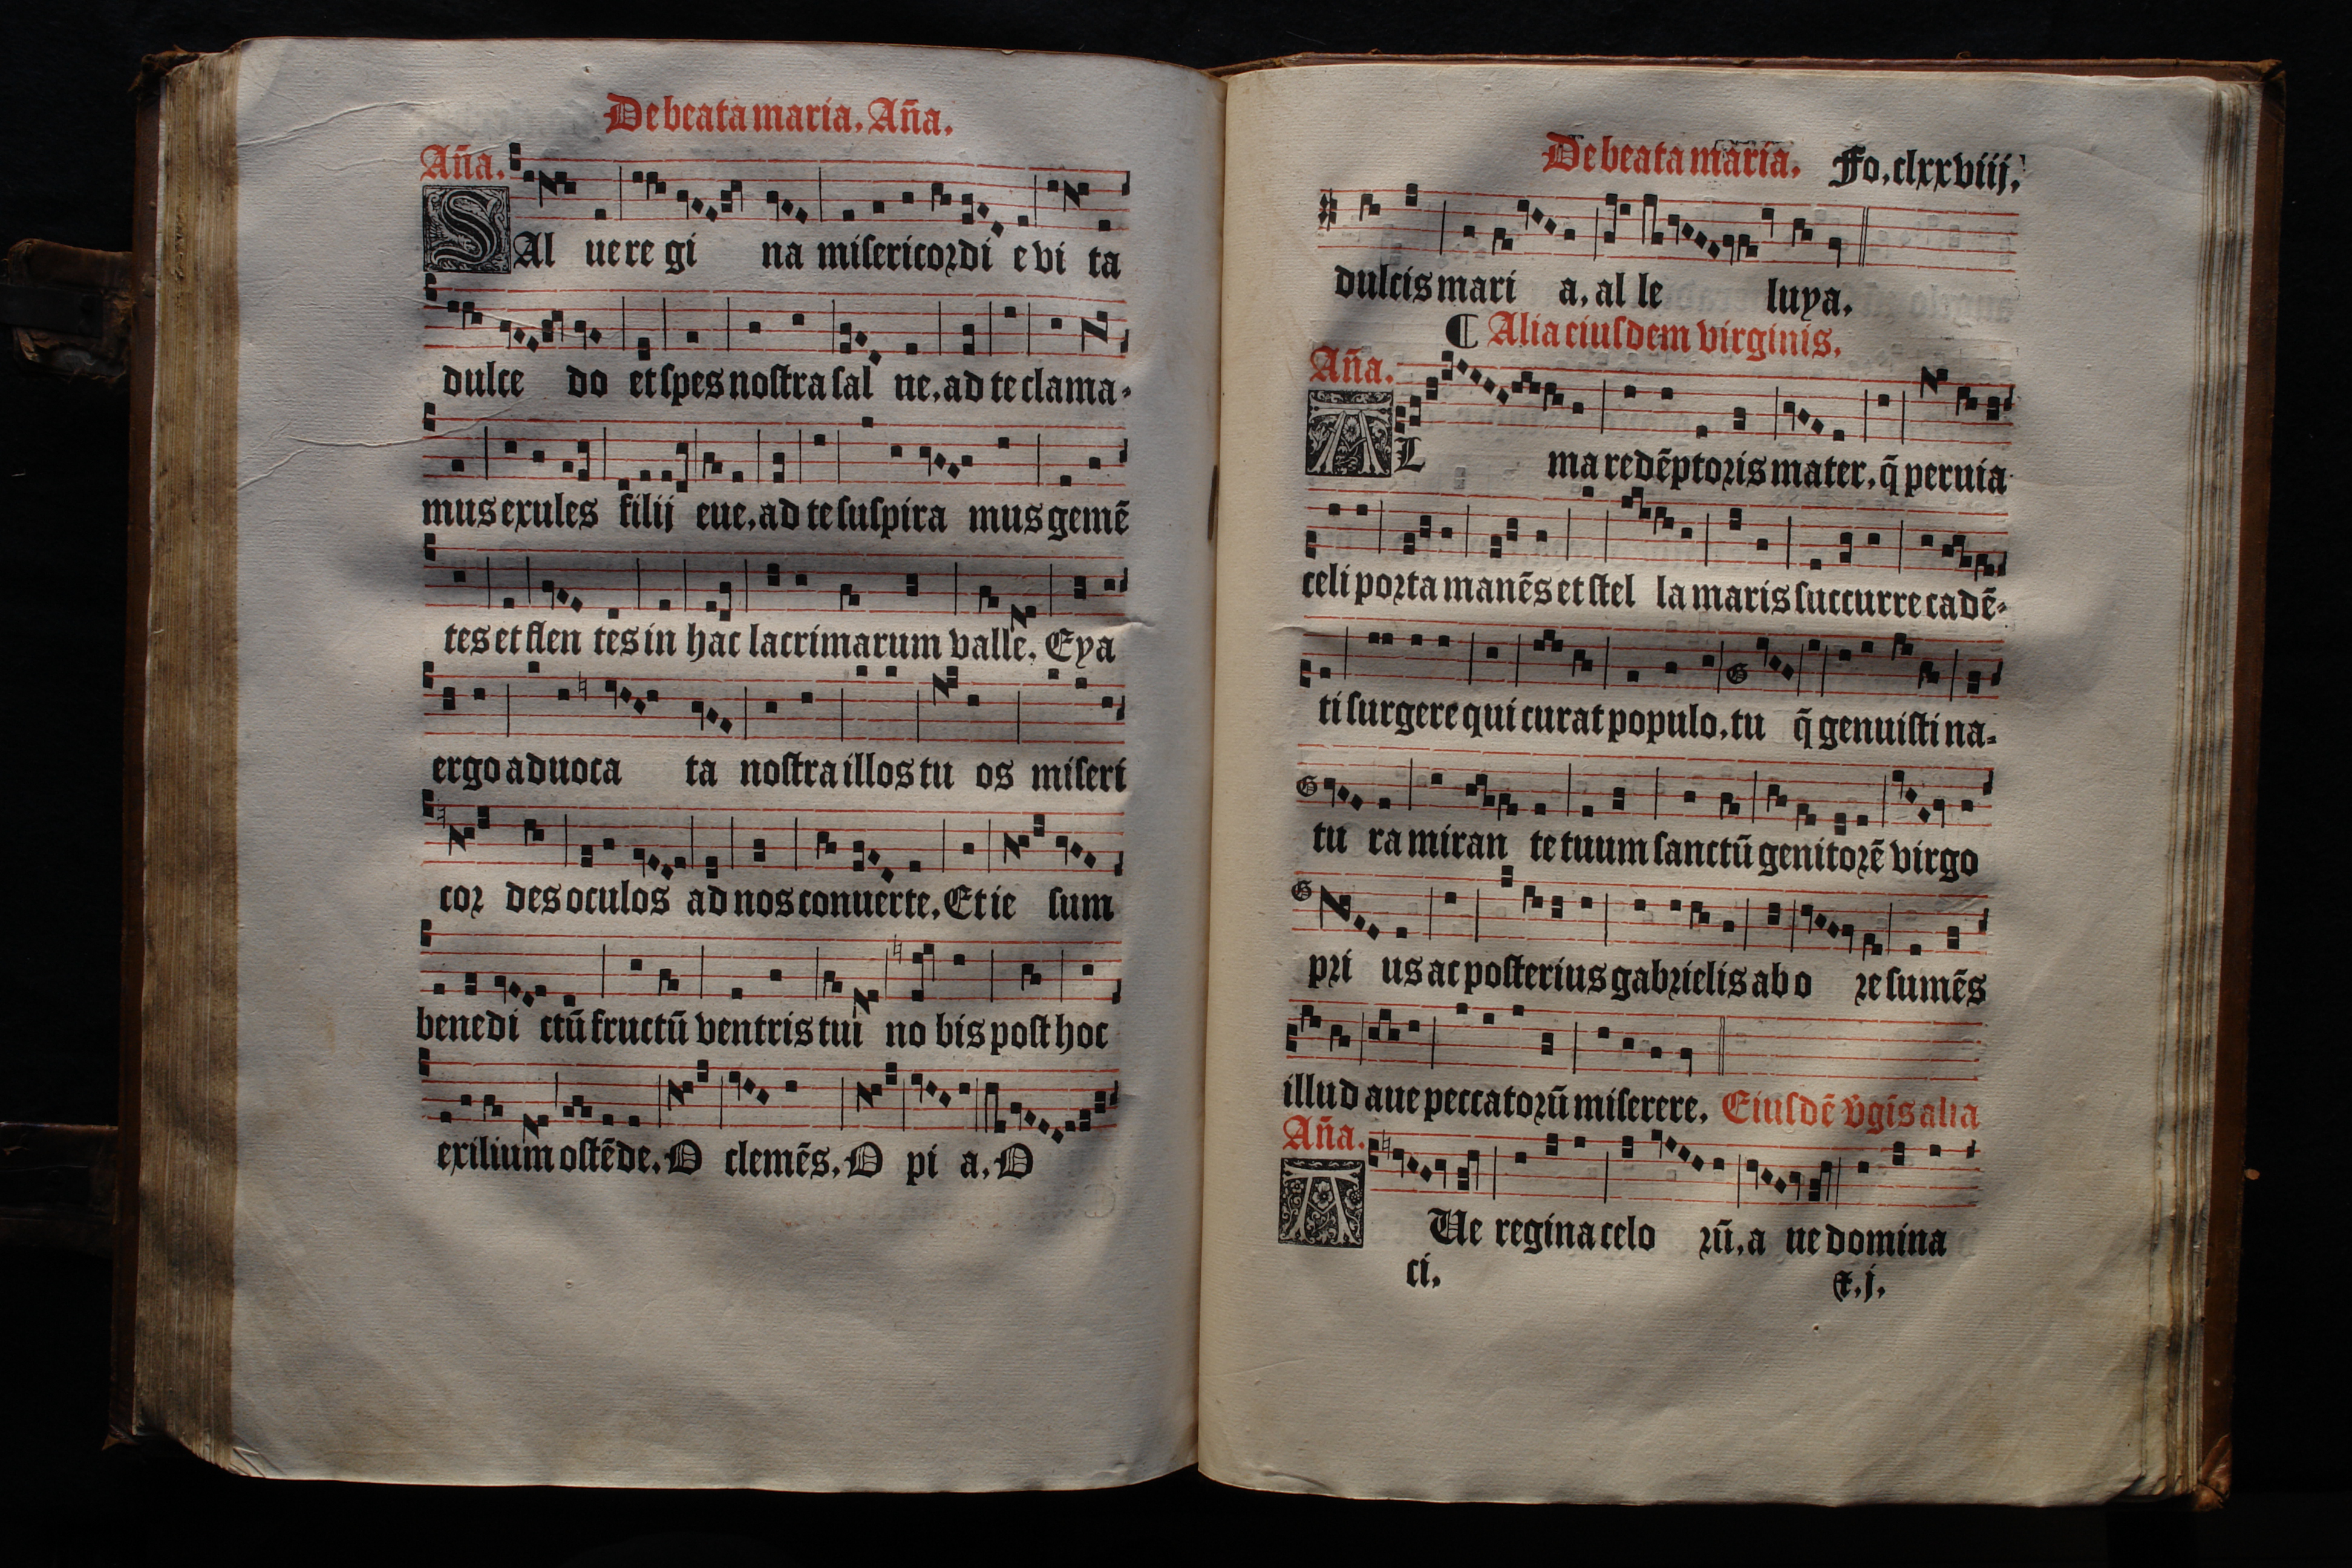 De beata maria. Año.
Aña.
SAl uere gi na misericordi e vi ta
dulce do et spes nostra sal ue. ad te clama-
mus exules filij eue. ad te suspira mus gemē
tes et flen tes in hac lacrimarum valle. Eya
ergo aduoca ta nostra illos tu os miseri
cor des oculos ad nos conuerte. Et ie sum
benedi ctū fructū ventris tui no bis post hoc
exilium ostēde. O clemēs. O pi a. O
De beata maria. Fo. clxxviij.
dulcis mari a. al le luya.
¶ Alia eiusdem virginis.
Aña.
AL ma redēptoris mater. q̄ peruia
celi porta manēs et stel la maris succurre cadē-
ti surgere qui curat populo. tu q̄ genuisti na-
tu ra miran te tuum sanctū genitorē virgo
pri us ac posterius gabrielis ab o re sumēs
illud aue peccatorū miserere. Eiusdē v̄gīs alia
Aña.
AUe regina celo rū. a ue domina
ci. &. j.